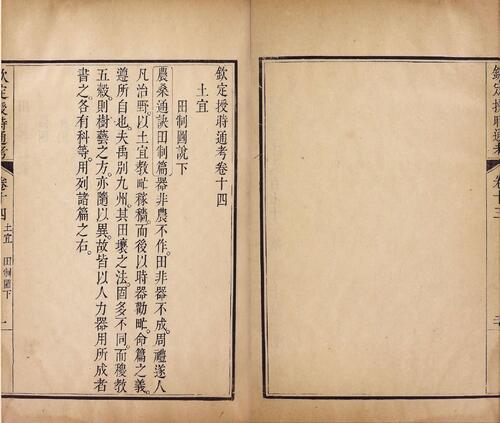 欽定授時通考 卷十三
欽定授時通考卷十四
土宜
田制圖說下
農桑通訣田制篇器非農不作田非器不成周禮遂人
凡治野以土宜教甿稼穡而後以時器勸甿命篇之義
遵所自也夫禹別九州其田壤之法固多不同而稷教
五穀則樹藝之方亦隨以異故皆以人力器用所成者
書之各有科等用列諸篇之右
欽定授時通考 卷十四 土宜 田制圖下 一